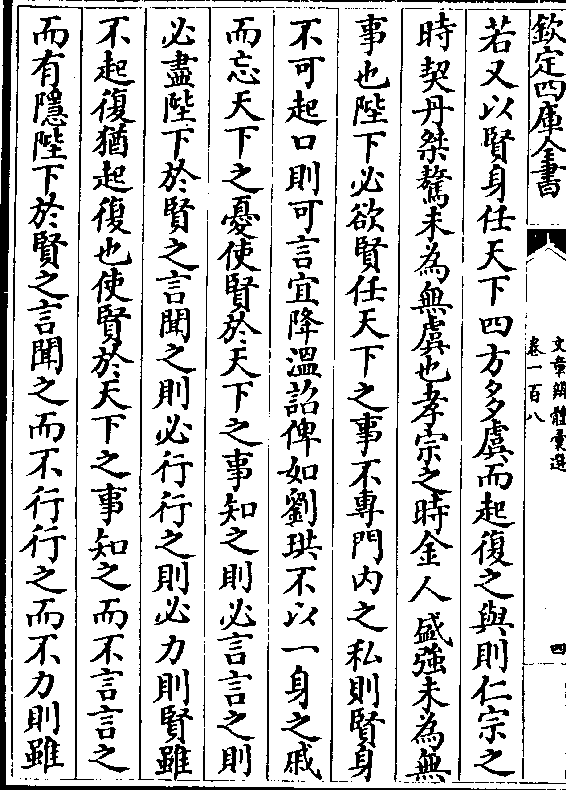 欽定四庫全書
文章辨體彙選
卷一百八
四
若又以賢身任天下四方多虞而起復之與則仁宗之
時契丹桀驁未為無虞也孝宗之時金人盛強未為無
事也陛下必欲賢任天下之事不專門内之私則賢身
不可起口則可言宜降溫詔俾如劉珙不以一身之戚
而忘天下之憂使賢於天下之事知之則必言言之則
必盡陛下於賢之言聞之則必行行之則必力則賢雖
不起復猶起復也使賢於天下之事知之而不言言之
而有隱陛下於賢之言聞之而不行行之而不力則雖